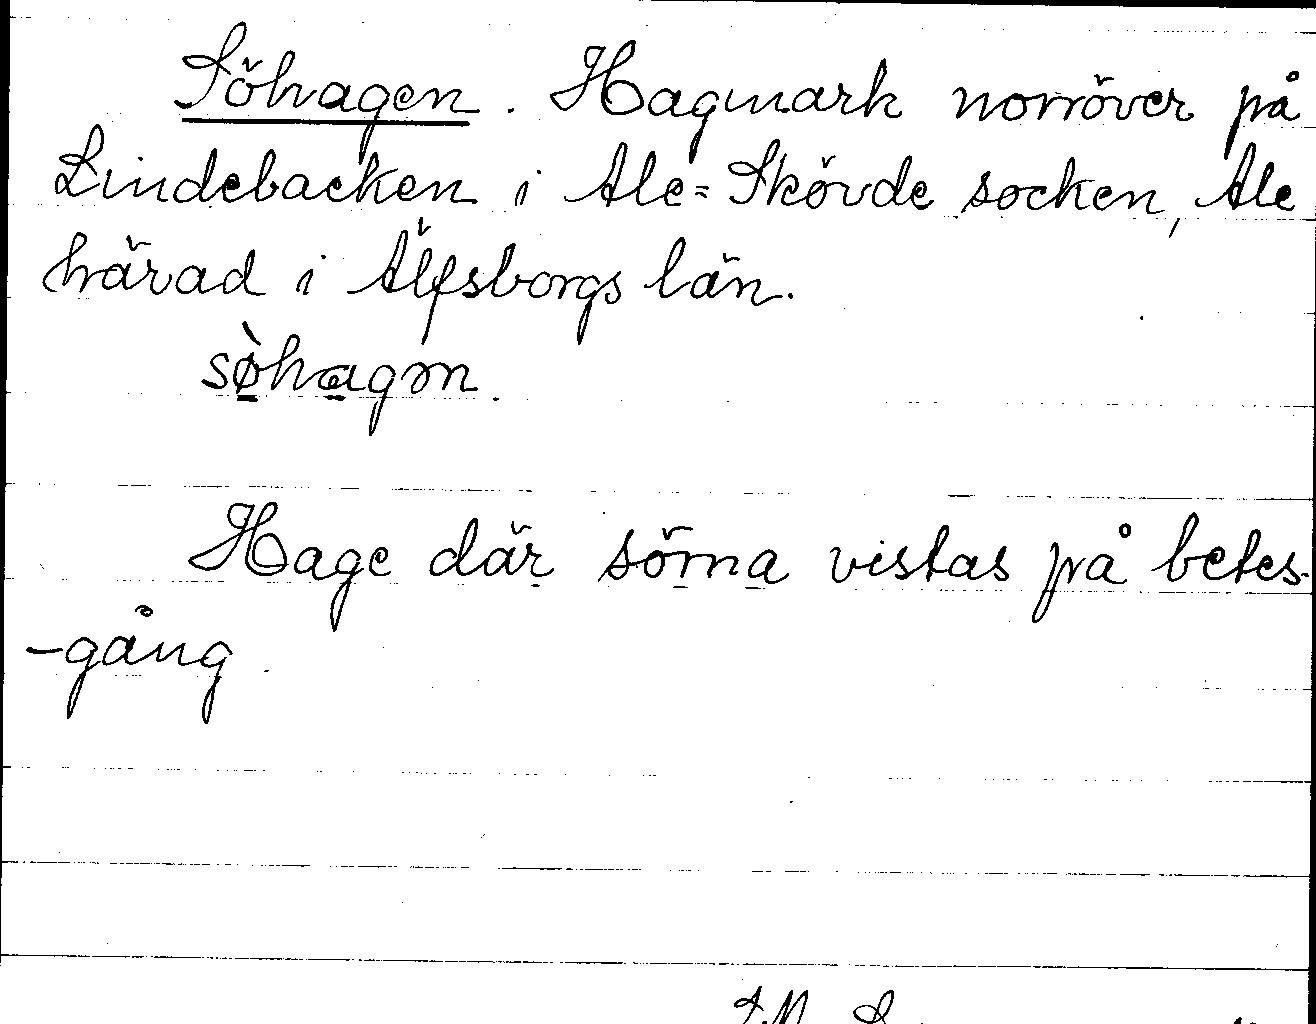 Söhagen. Hagmark norröver på
Lindebacken i Ale=Skövde socken, Ale
härad i Älfsborgs län.
sø̀hagm.
Hage där sörna vistas på betes-
-gång.